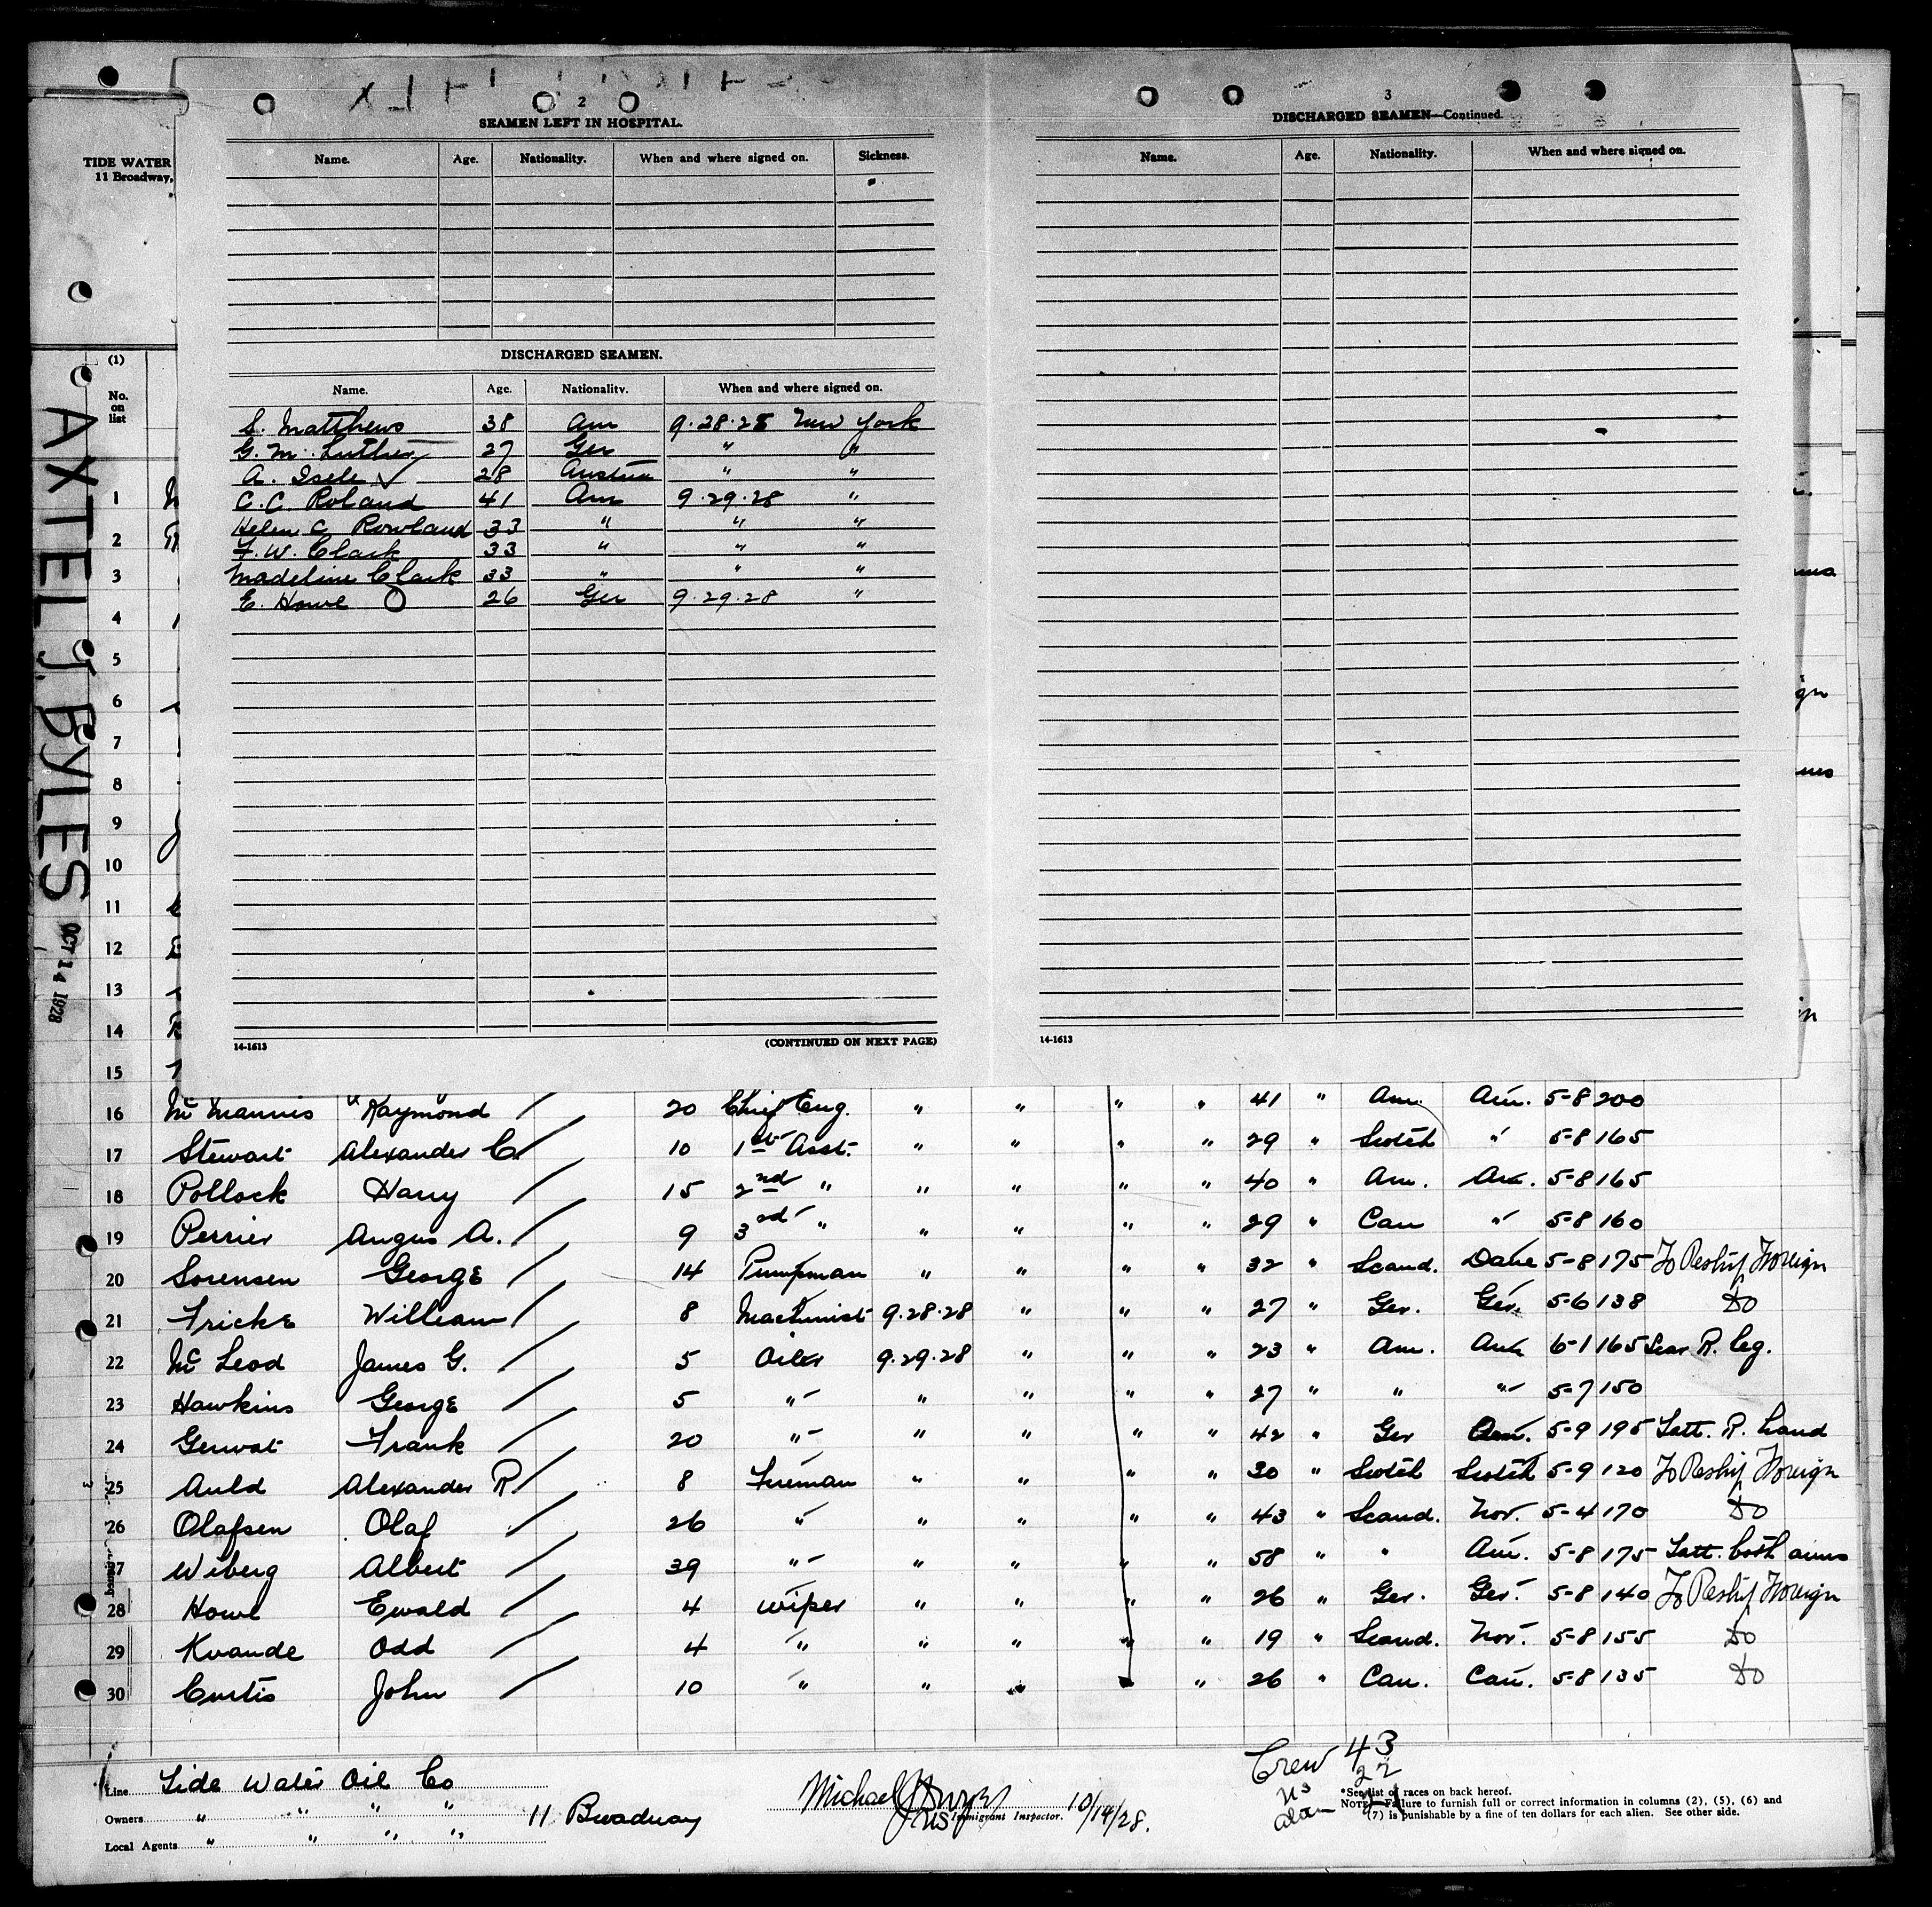 2
SEAMEN LEFT IN HOSPITAL.
Name. Age. Nationality. When and where signed on. Sickness.
DISCHARGED SEAMEN.
Name. Age. Nationality. When and where signed on.
C. Matthews 38 Am 9.28.28 New York
G. M. Luther 27 Ger " "
A. Isele 28 Austria " "
C. C. Roland 41 Am 9.29.28 "
Helen C Rowland 33 " " "
F. W. Clark 33 " " "
Madeline Clark 33 " " "
E. Howe 26 Ger 9.29.28 "
14-1613 (CONTINUED ON NEXT PAGE)
3
DISCHARGED SEAMEN—Continued.
Name. Age. Nationality. When and where signed on.
14-1613
TIDE WATER
11 Broadway,
AXTEL J. BYLES
OCT 14 1928
(1)
No. on list
1
2
3
4
5
6
7
8
9
10
11
12
13
14
15
16 McMannis Raymond 20 Chief Eng. " " " " 41 " Am. Am. 5-8 200
17 Stewart Alexander C. 10 1st Asst. " " " " 29 " Scotch " 5-8 165
18 Pollock Harry 15 2nd " " " " " 40 " Am. Am. 5-8 165
19 Perrier Angus A. 9 3rd " " " " " 29 " Can " 5-8 160
20 Sorensen George 14 Pumpman " " " " 32 " Scand. Dane 5-8 175 To Reship Foreign
21 Fricke William 8 Machinist 9.28.28 " " " 27 " Ger. Ger. 5-6 138 Do
22 McLeod James G. 5 Oiler 9.29.28 " " " 23 " Am. Am 6-1 165 Scar R. leg.
23 Hawkins George 5 " " " " " 27 " " " 5-7 150
24 Gerwat Frank 20 " " " " " 42 " Ger Am. 5-9 195 Tatt. R. hand
25 Auld Alexander R 8 Fireman " " " " 30 " Scotch Scotch 5-9 120 To Reship Foreign
26 Olafsen Olaf 26 " " " " " 43 " Scand. Nor. 5-4 170 Do
27 Wiberg Albert 39 " " " " " 58 " " Am. 5-8 175 Tatt. both arms
28 Howe Ewald 4 Wiper " " " " 26 " Ger. Ger. 5-8 140 To Reship Foreign
29 Kvande Odd 4 " " " " " 19 " Scand. Nor. 5-8 155 Do
30 Curtis John 10 " " " " " 26 " Can. Can. 5-8 135 Do
Line Tide Water Oil Co
Owners " " " " 11 Broadway
Local Agents " " " "
Michael
Immigrant Inspector. 10/14/28.
Crew 43
US 22
alien 21
*See list of races on back hereof.
NOTE—Failure to furnish full or correct information in columns (2), (5), (6) and
(7) is punishable by a fine of ten dollars for each alien. See other side.